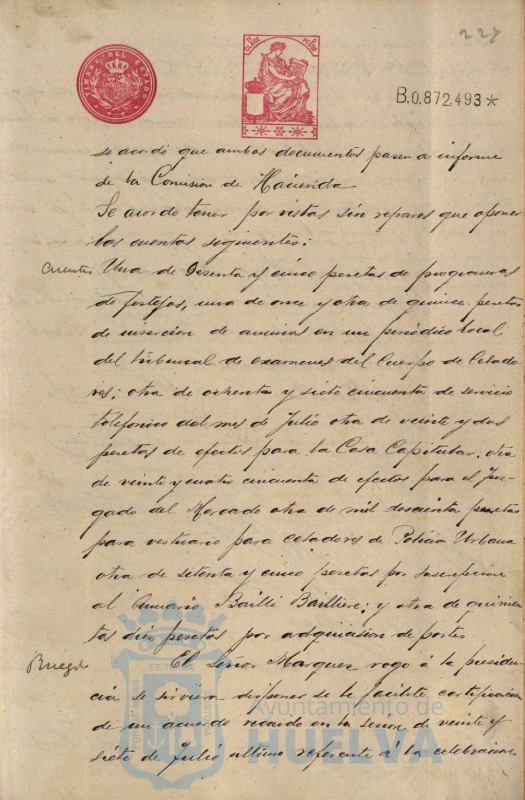 227
TIMBRE DEL ESTADO
10 CLASE
B.0.872.493*
se acordó que ambos documentos pasen a informe
de la Comision de Hacienda
Se acordo tener por vistas sin reparos que oponer
las cuentas siguientes:
Cuentas Una de sesenta y cinco pesetas de programas
de festejos, una de once y otra de quince pesetas
de insercion de anuncios en un periódico local
del tribunal de examenes del Cuerpo de Celado
res; otra de ochenta y siete cincuenta de servicio
telefonico del mes de Julio otra de veinte y dos
pesetas de efectos para la Casa Capitular. otra
de veinte y cuatro cincuenta de efectos para el Juz-
gado del Mercado otra de mil doscientas pesetas
para vestuario para celadores de Policia Urbana
otra de setenta y cinco pesetas por suscripcion
al Anuario Bailli Bailliere; y otra de quinien
tas diez pesetas por adquicision de
Ruego El Señor Marquez rogó á la presiden-
cia se sirviera disponer se le facilite certificacion
de un acuerdo recaido en la sesion de veinte y
siete de Julio ultimo referente á la celebracion
Ayuntamiento de
HUELVA